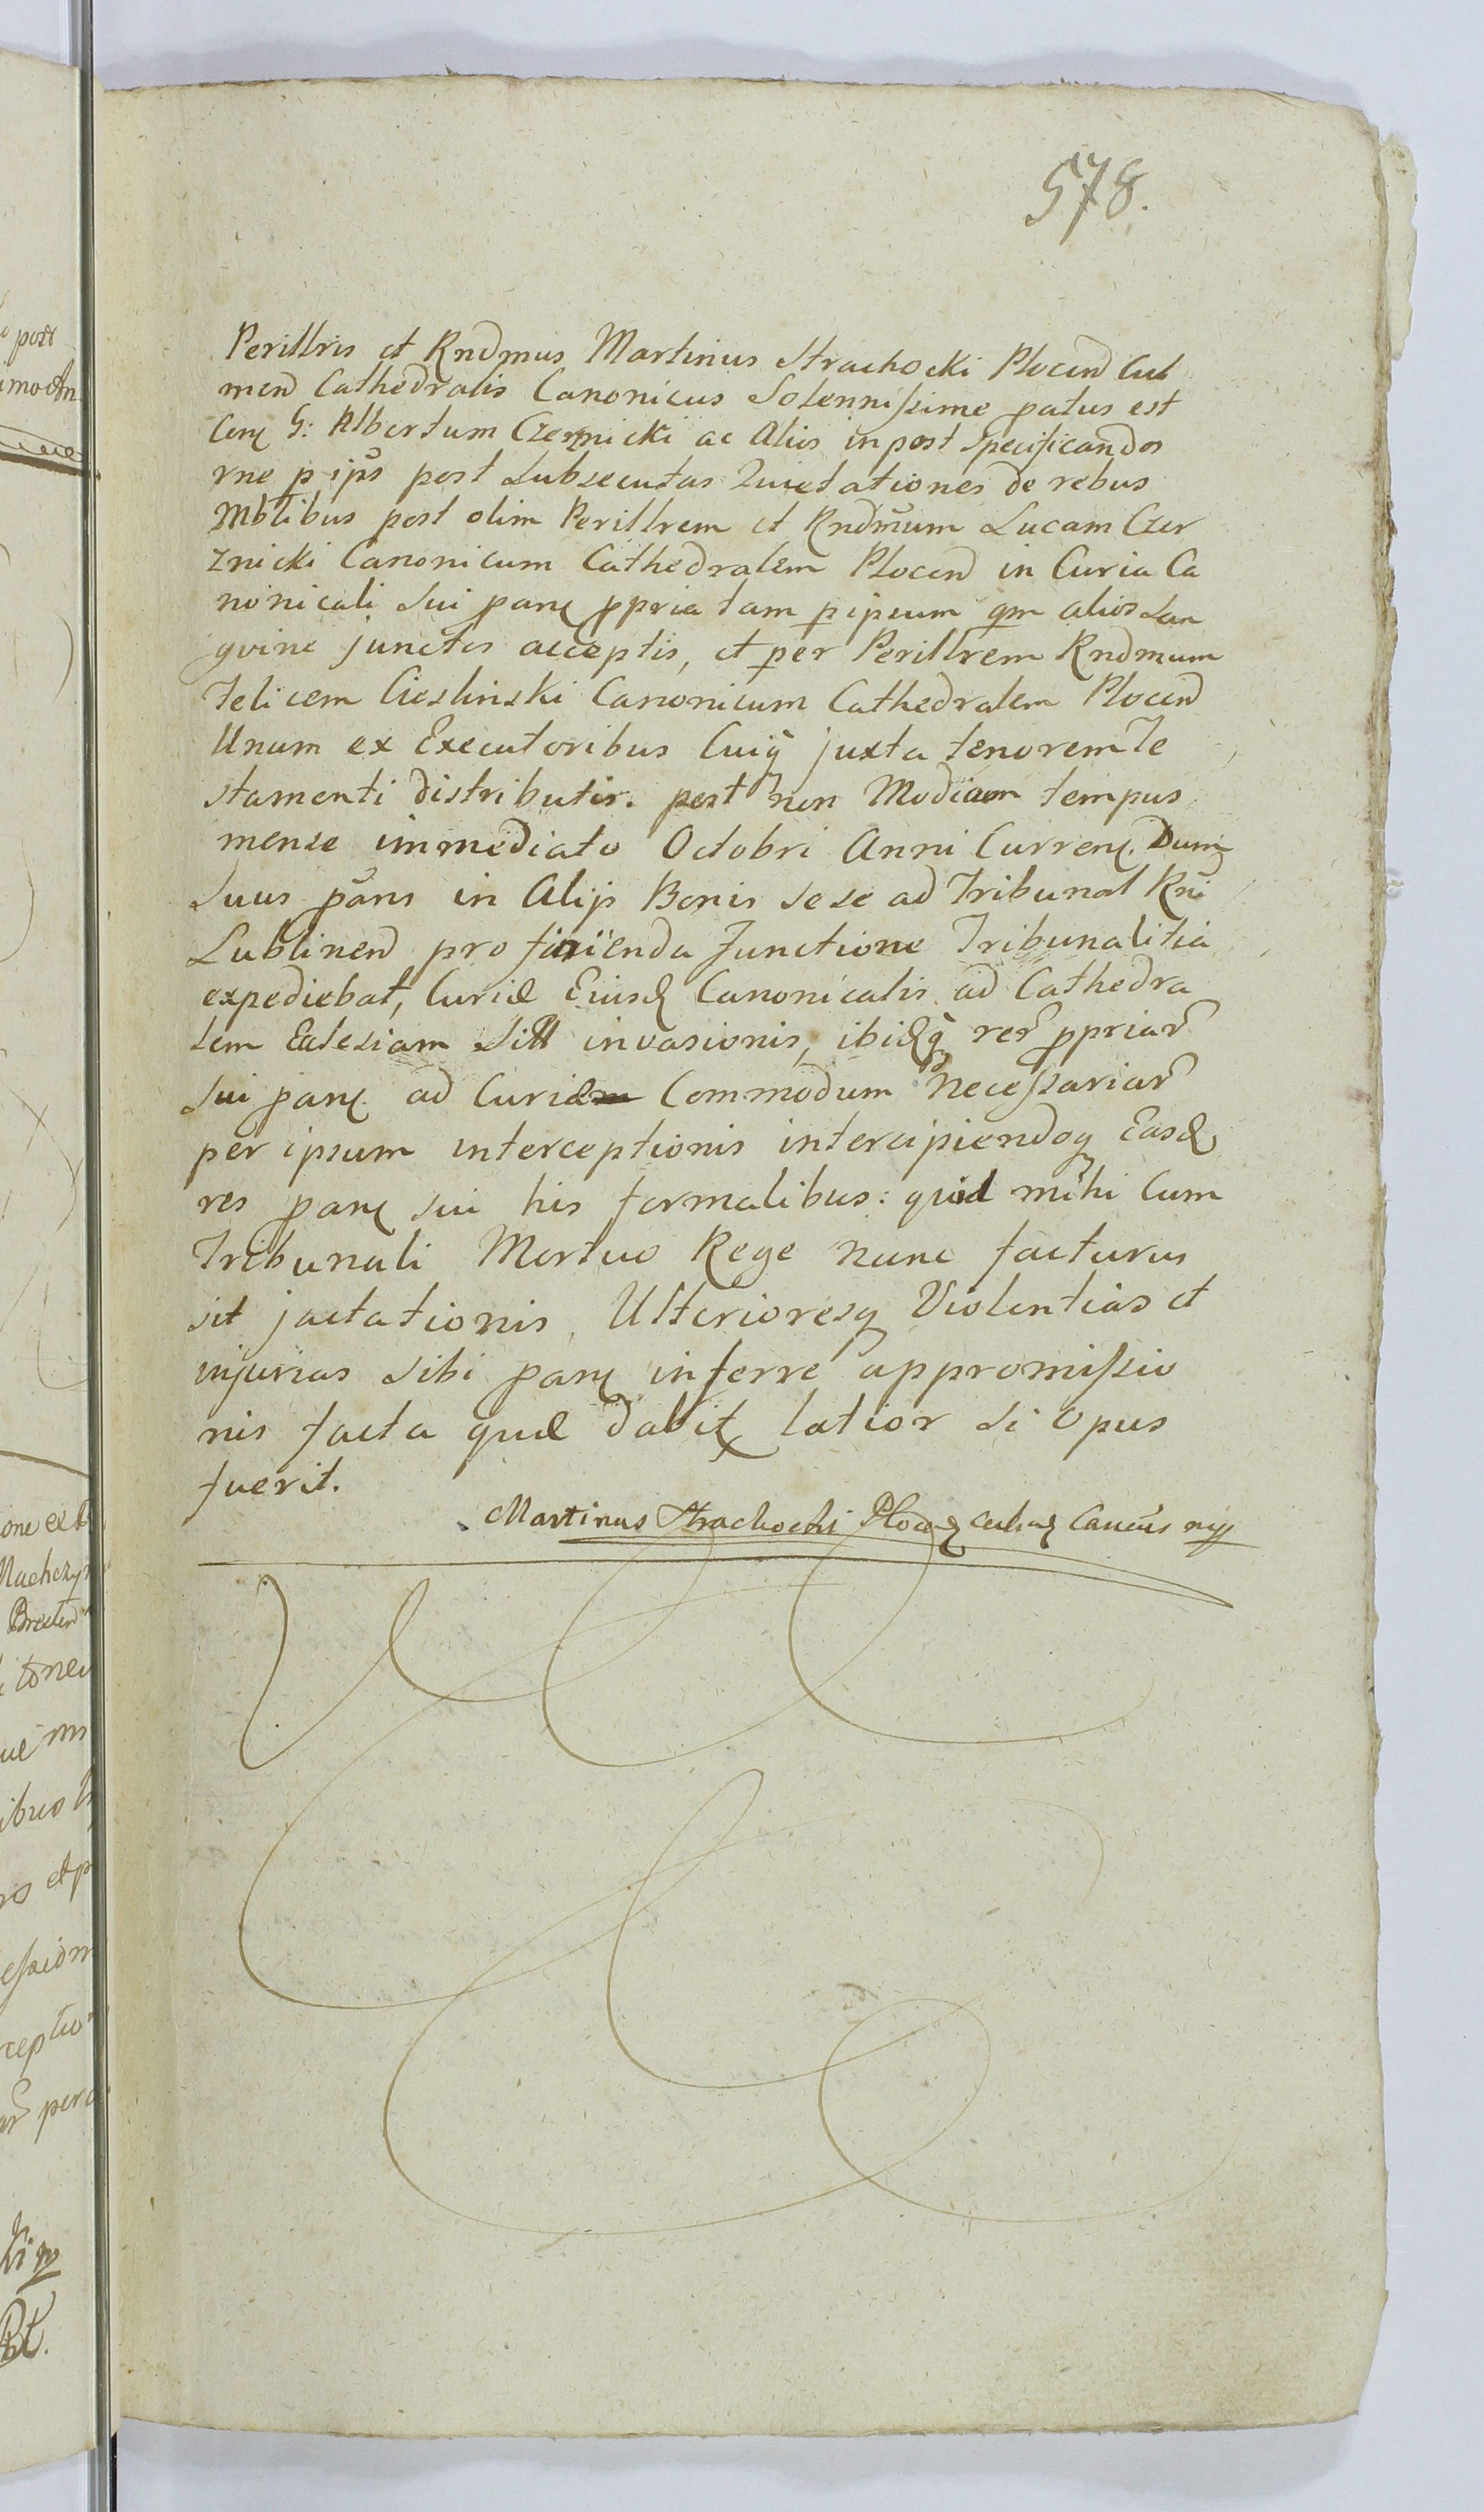 578.
Perillris et Rndmus Martinus Strachocki Plocen Cul
men Cathedralis Canonicus Solennissime ptus est
Con G: Albertum Czernicki ac Alios inpost Specificandos
rne p ips post Subsecutas Quietationes de rebus
Mblibus post olim Perillrem et Rndmum Lucam Czer
znicki Canonicum Cathedralem Plocen in Curia Ca
nonicali Sui pan ppria tam p ipsum qm alios San
gvine junctos acceptis, et per Perillrem Rndmum
Felicem Cieslinski Canonicum Cathedralem Plocen
Unum ex Executoribus Cuiq juxta tenorem Te
stamenti distributis. post non Modicum tempus
mense immediato Octobri Anni Curren. Dum
Suus pans in Alijs Bonis sese ad Tribunal Rni
Lublinen pro finienda Functione Tribunalitia
expediebat, Curiæ Eiusd Canonicalis ad Cathedra
lem Eclesiam Sitt invasionis, ibidq rer ppriar
Sui pan ad Curiæ Commodum Necessariar
per ipsum interceptionis intercipiendoq Easd
res pan sui his formalibus: quid mihi Cum
Tribunali Mortuo Rege nunc facturus
sit jactationis, Ulterioresq Violentias et
injurias Sibi pan inferre appromissio
nis facta quæ dabit latior si opus
fuerit.
Martinus Strachocki Plocen Culmen Cancus mp